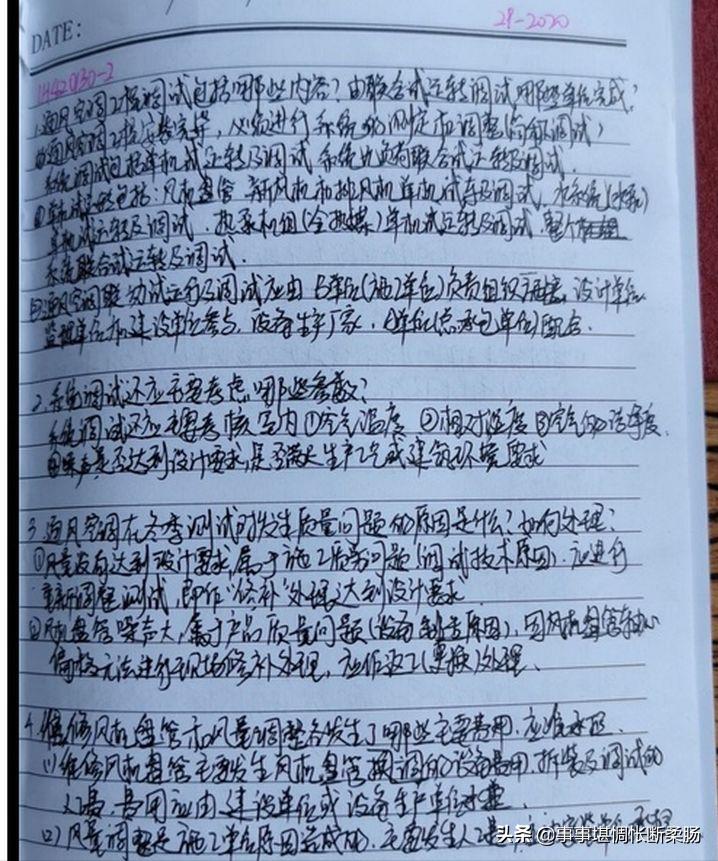 DATE:
29-2020
1H420130-2
1.通风空调工程调试包括哪些内容?由联合试运转调试哪些单位完成?
①通风空调工程安装完毕,必须进行系统的测定和调整(简称调试)
系统调试包括单机试运转及调试 系统无负荷联合试运转及调试.
②单机试 包括:风机盘管 新风机和排风机单机试车及调试,水系统(水泵)
单机试运转及调试.热泵机组(全热媒)单机试运转及调试.整个
系统联合试运转及调试.
③通风空调联动试运行及调试应由B单位(施工单位)负责组织 ,设计单位
监理单位和建设单位参与,设备生产厂家,A单位(总承包单位)配合.
2.系统调试还应主要考虑哪些参数?
系统调试还应主要考核室内①空气温度 ②相对湿度 ③空气的洁净度.
④噪声是否达到设计要求,是否满足生产工艺或建筑环境要求
3.通风空调在冬季测试时发生质量问题的原因是什么?如何处理?
①风量没有达到设计要求,属于施工质量问题(调试技术原因).应进行
重新调整测试,即作“修补”处理,达到设计要求.
②风机盘管噪声大,属于产品质量问题(设备制造原因),因风机盘管轴心
偏移无法进行现场修补处理,应作返工(更换)处理.
4.维修风机盘管和风量调整各发生了哪些主要费用,应谁承担.
(1)维修风机盘管主要发生风机盘管 的设备费用,拆装及调试的
人工费,费用应由建设单位或设备生产单位
(2)风量调整是施工单位原因造成的,主要发生人工费
头条 @事事堪惆怅断柔肠